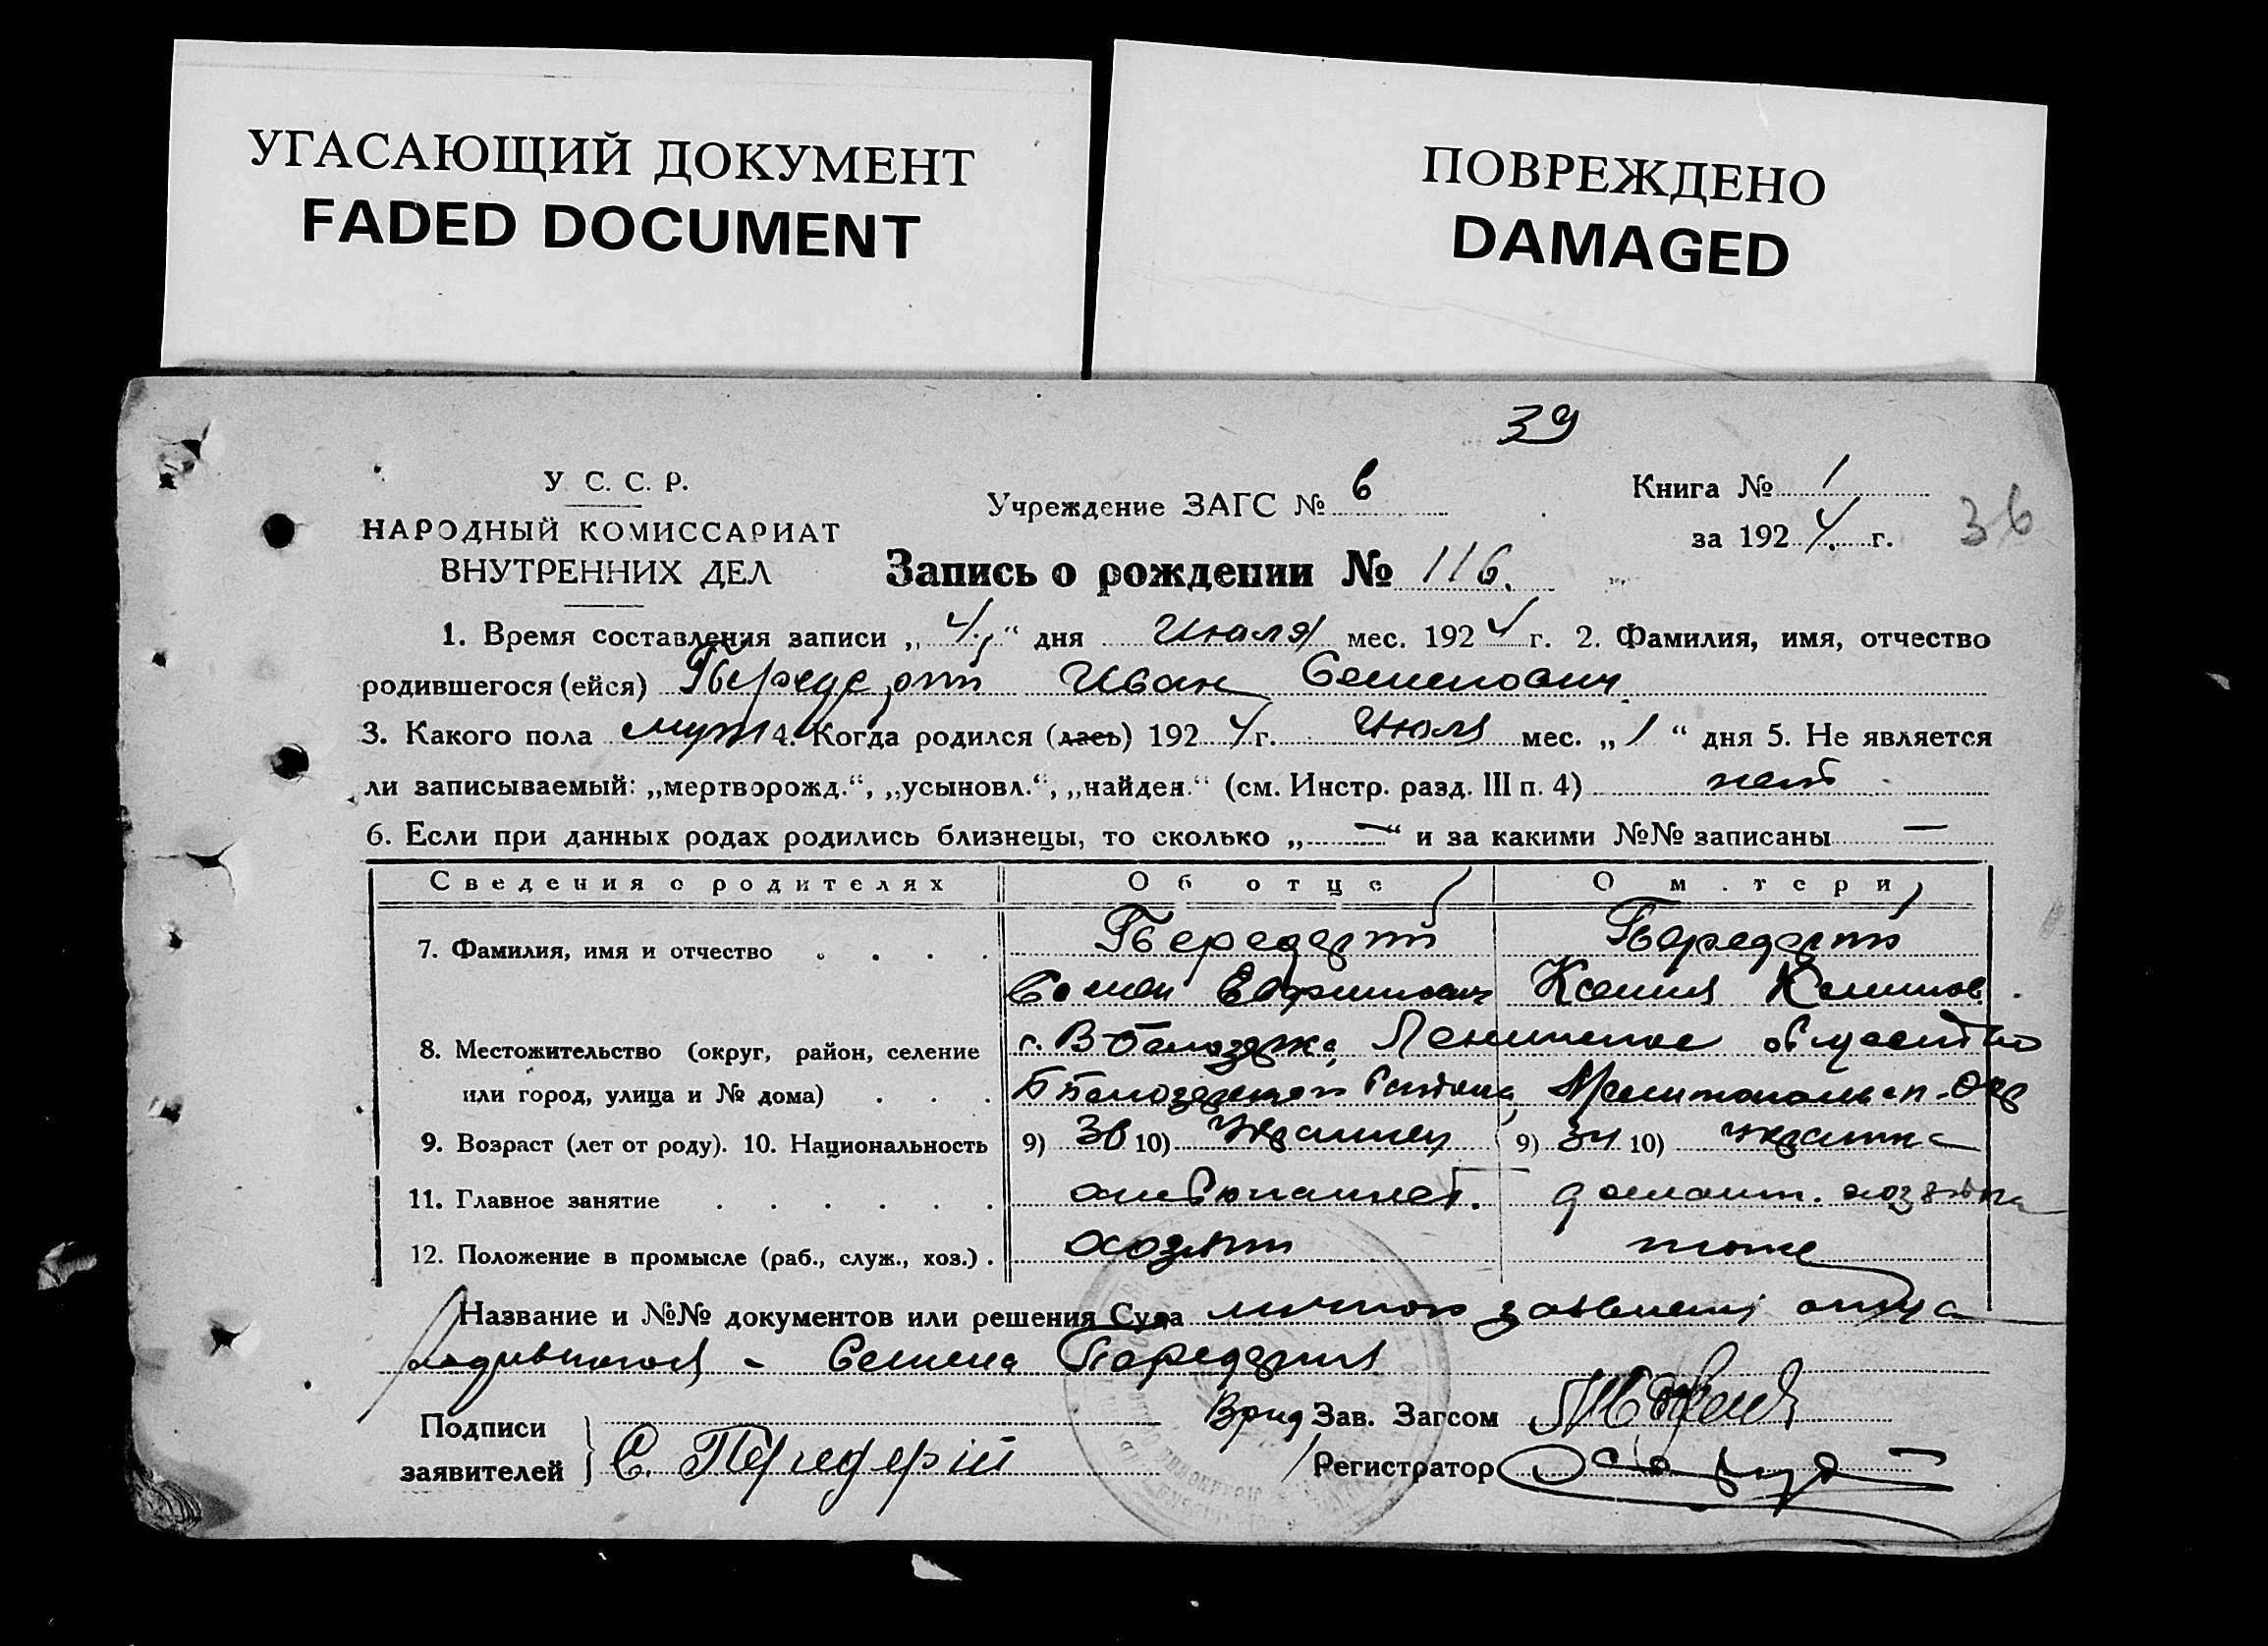 УГАСАЮЩИЙ ДОКУМЕНТ
FADED DOCUMENT
ПОВРЕЖДЕНО
DAMAGED
39
У. С. С. Р.
НАРОДНЫЙ КОМИССАРИАТ
ВНУТРЕННИХ ДЕЛ
Учреждение ЗАГС № 6
Книга № 1
за 1924 г.
36
Запись о рождении № 116.
1. Время составления записи „4" дня Июля мес. 1924 г. 2. Фамилия, имя, отчество
родившегося (ейся) Передерий Иван Семенович
3. Какого пола муж 4. Когда родился (лась) 1924 г. Июля мес. „1" дня 5. Не является
ли записываемый: „мертворожд.", „усыновл.", „найден." (см. Инстр. разд. III п. 4) нет
6. Если при данных родах родились близнецы, то сколько „—" и за какими №№ записаны —
Сведения о родителях Об отце О м тери
7. Фамилия, имя и отчество Передерий Передерий
Семен Ксения
8. Местожительство (округ, район, селение г. В
или город, улица и № дома) Района,
9. Возраст (лет от роду). 10. Национальность 9) 36 10) Украинец 9) 34 10) украинка
11. Главное занятие домашн. хозяйка
12. Положение в промысле (раб., служ., хоз.) хозяин тоже
Название и №№ документов или решения Суда личное отца
родившегося - Семена Передерия
Подписи
заявителей
С. Передерій
Врид Зав. Загсом
Регистратор